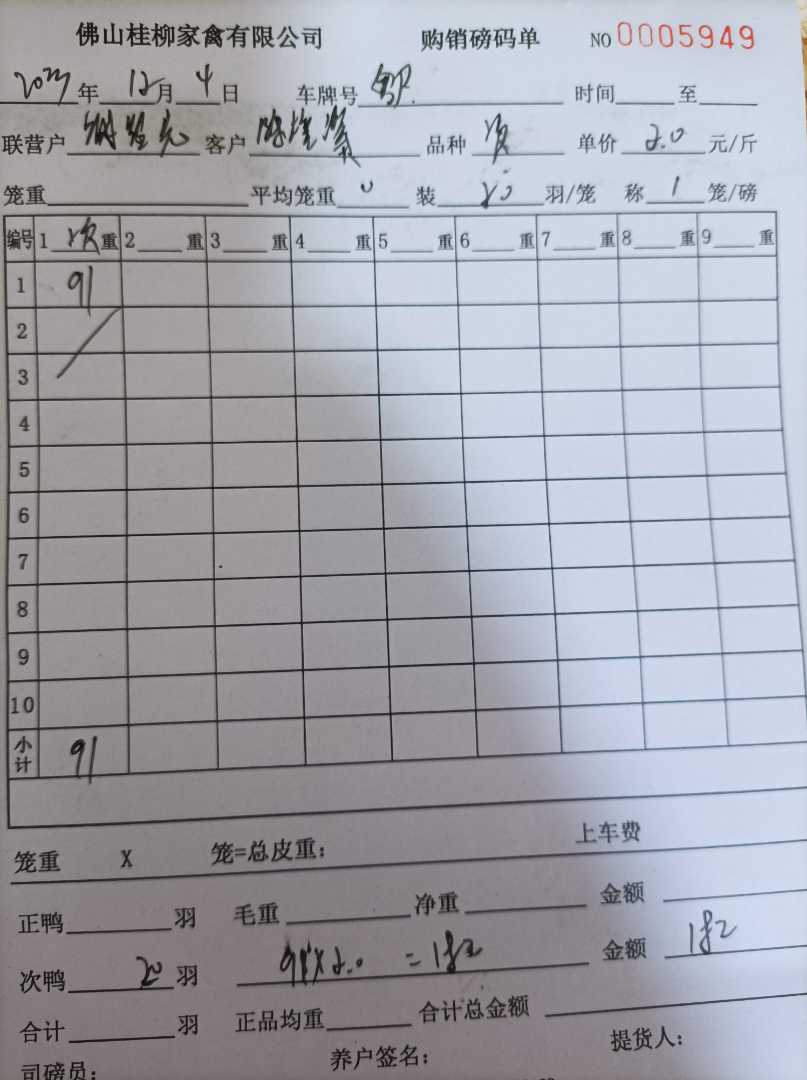 佛山桂柳家禽有限公司 购销磅码单 NO 0005949
2023年 12月 4日 车牌号 邹 时间 至
联营户 客户 品种 次 单价 2.0 元/斤
笼重 平均笼重 0 装 20 羽/笼 称 1 笼/磅
编号 1 次 重 2 重 3 重 4 重 5 重 6 重 7 重 8 重 9 重
1 91
2
3
4
5
6
7
8
9
10
小计 91
笼重 X 笼=总皮重: 上车费
正鸭 羽 毛重 净重 金额
次鸭 20 羽 91X2.0 =182 金额 182
合计 羽 正品均重 合计总金额
司磅员: 养户签名: 提货人: